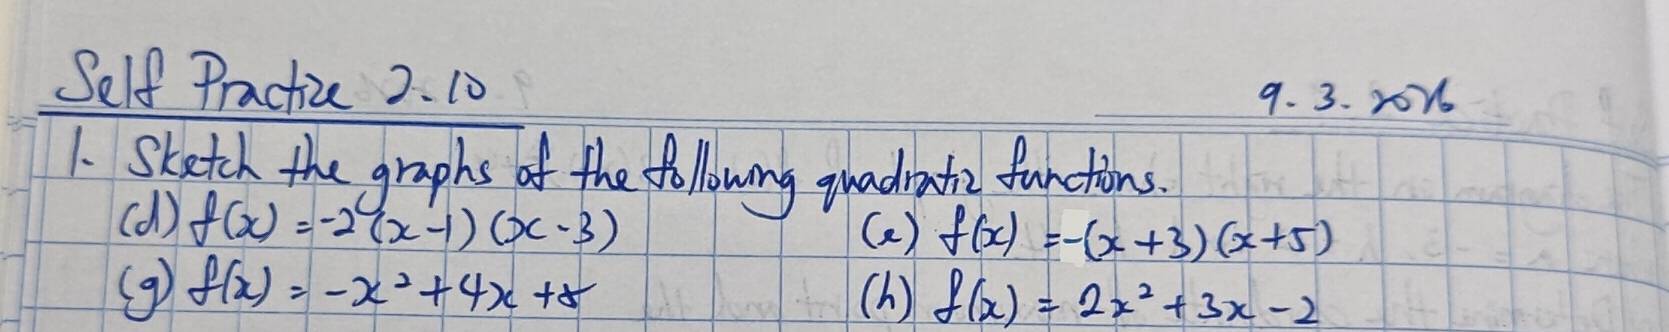 Self Practice 2.10 9.3.2026
1. Sketch the graphs of the following quadratic functions.
(d) f(x) = -2(x-1)(x-3) (e) f(x) = -(x+3)(x+5)
(g) f(x) = -x²+4x+5 (h) f(x) = 2x²+3x-2